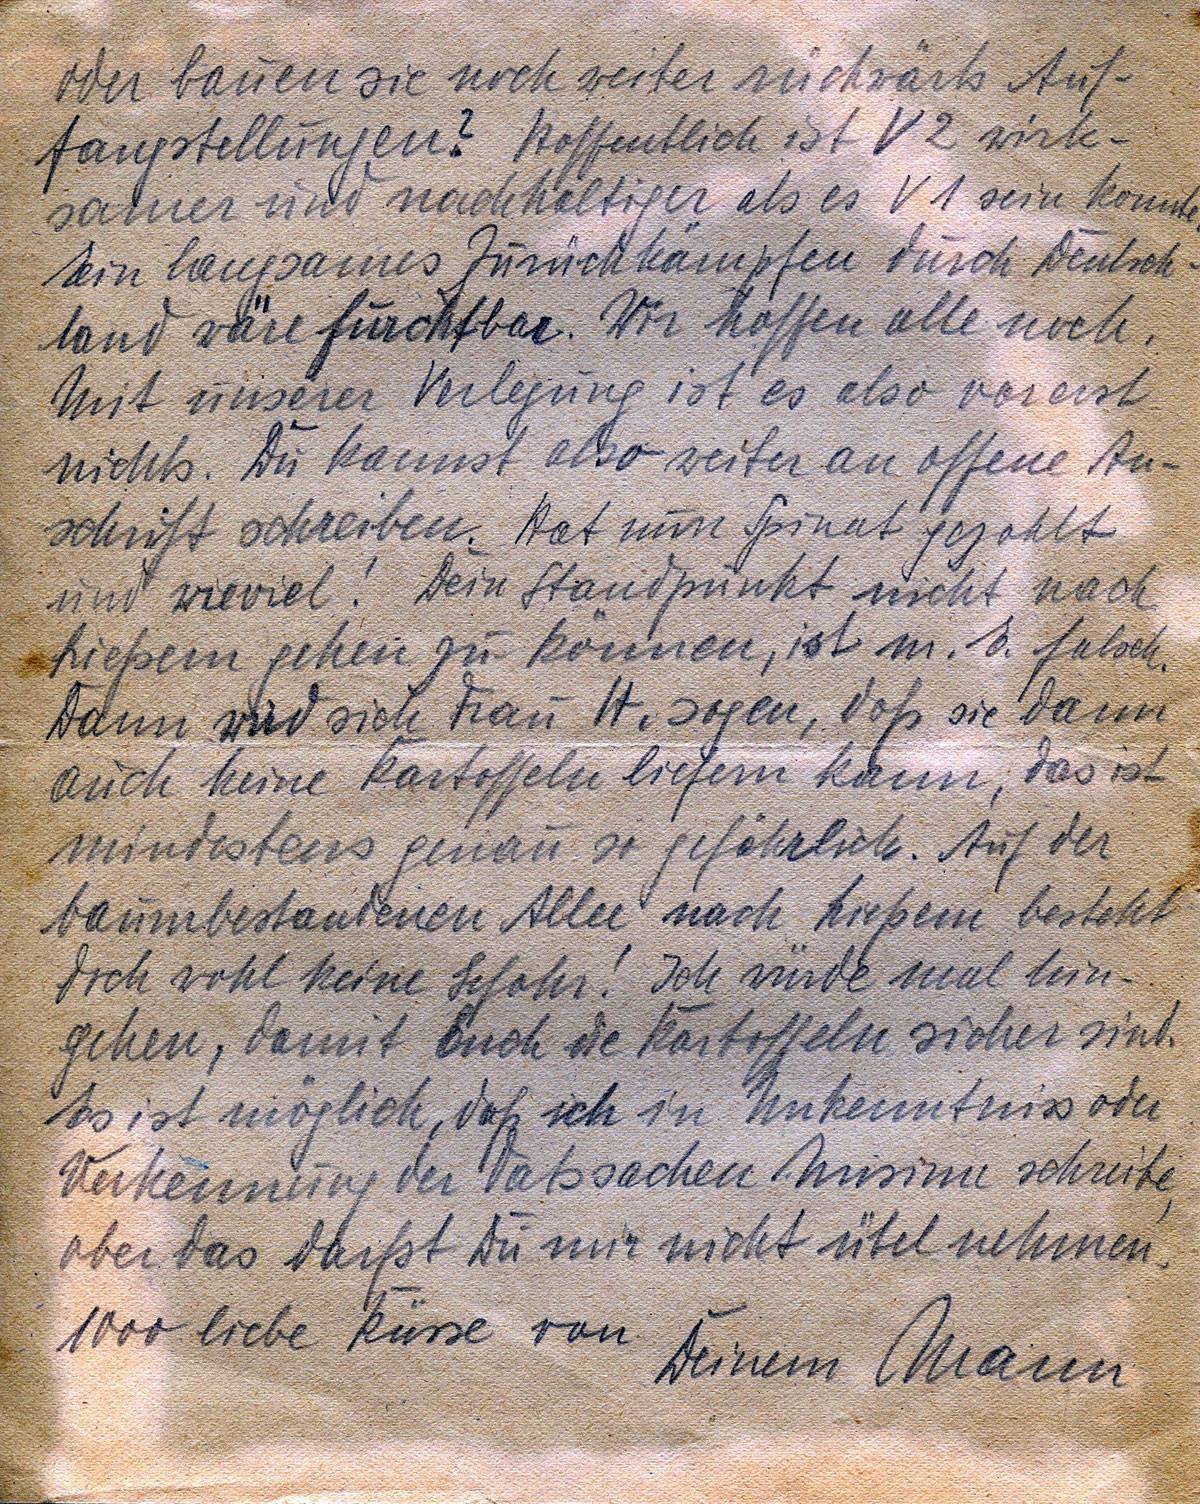 oder bauen sie noch weiter rückwärts Auf-
fangstellungen? Hoffentlich ist V 2 wirk-
samer und nachhaltiger als es V 1 sein konnte.
Ein langsames Zurückkämpfen durch Deutsch-
land wäre furchtbar. Wir hoffen alle noch.
Mit unserer Verlegung ist es also vorerst
nichts. Du kannst also weiter an offene An-
schrift schreiben. Hat nun Spinat gezahlt
und wieviel! Dein Standpunkt nicht nach
Ließem gehen zu können, ist m. E. falsch.
Dann wird sich Frau H. sagen, daß sie dann
auch keine Kartoffeln liefern kann, das ist
mindestens genau so gefährlich. Auf der
baumbestandenen Allee nach Ließem besteht
doch wohl keine Gefahr! Ich würde mal hin-
gehen, damit Euch die Kartoffeln sicher sind.
Es ist möglich, daß ich in Unkenntniss oder
Verkennung der Tatssachen Unsinn schreibe,
aber das darfst Du mir nicht übel nehmen.
1000 liebe Küsse von
Deinem Mann